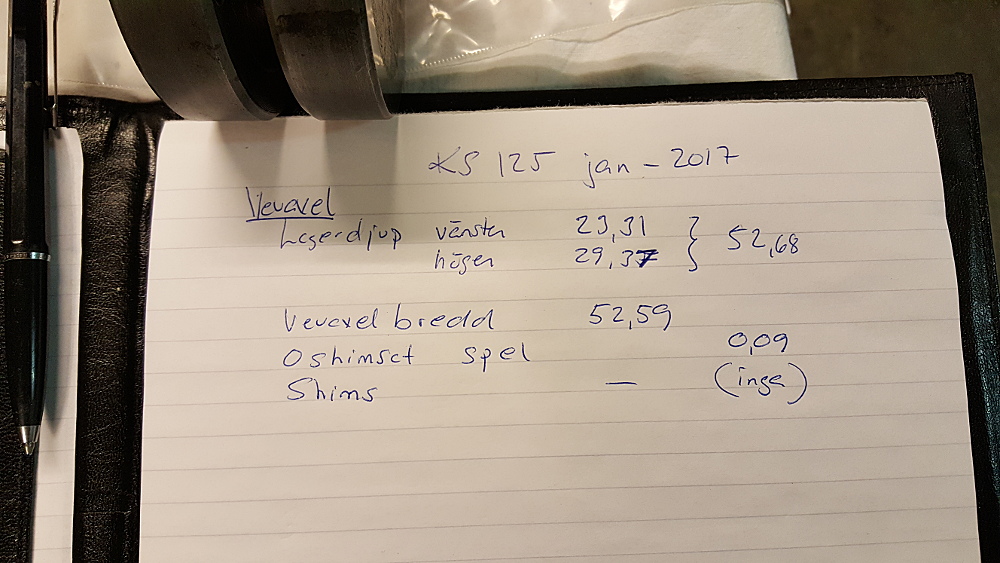 KS 125 jan - 2017
Vevaxel
Lagerdjup vänster 23,31 } 52,68
höger 29,37
Vevaxel bredd 52,59
Oshimsat spel 0,09
Shims — (inga)